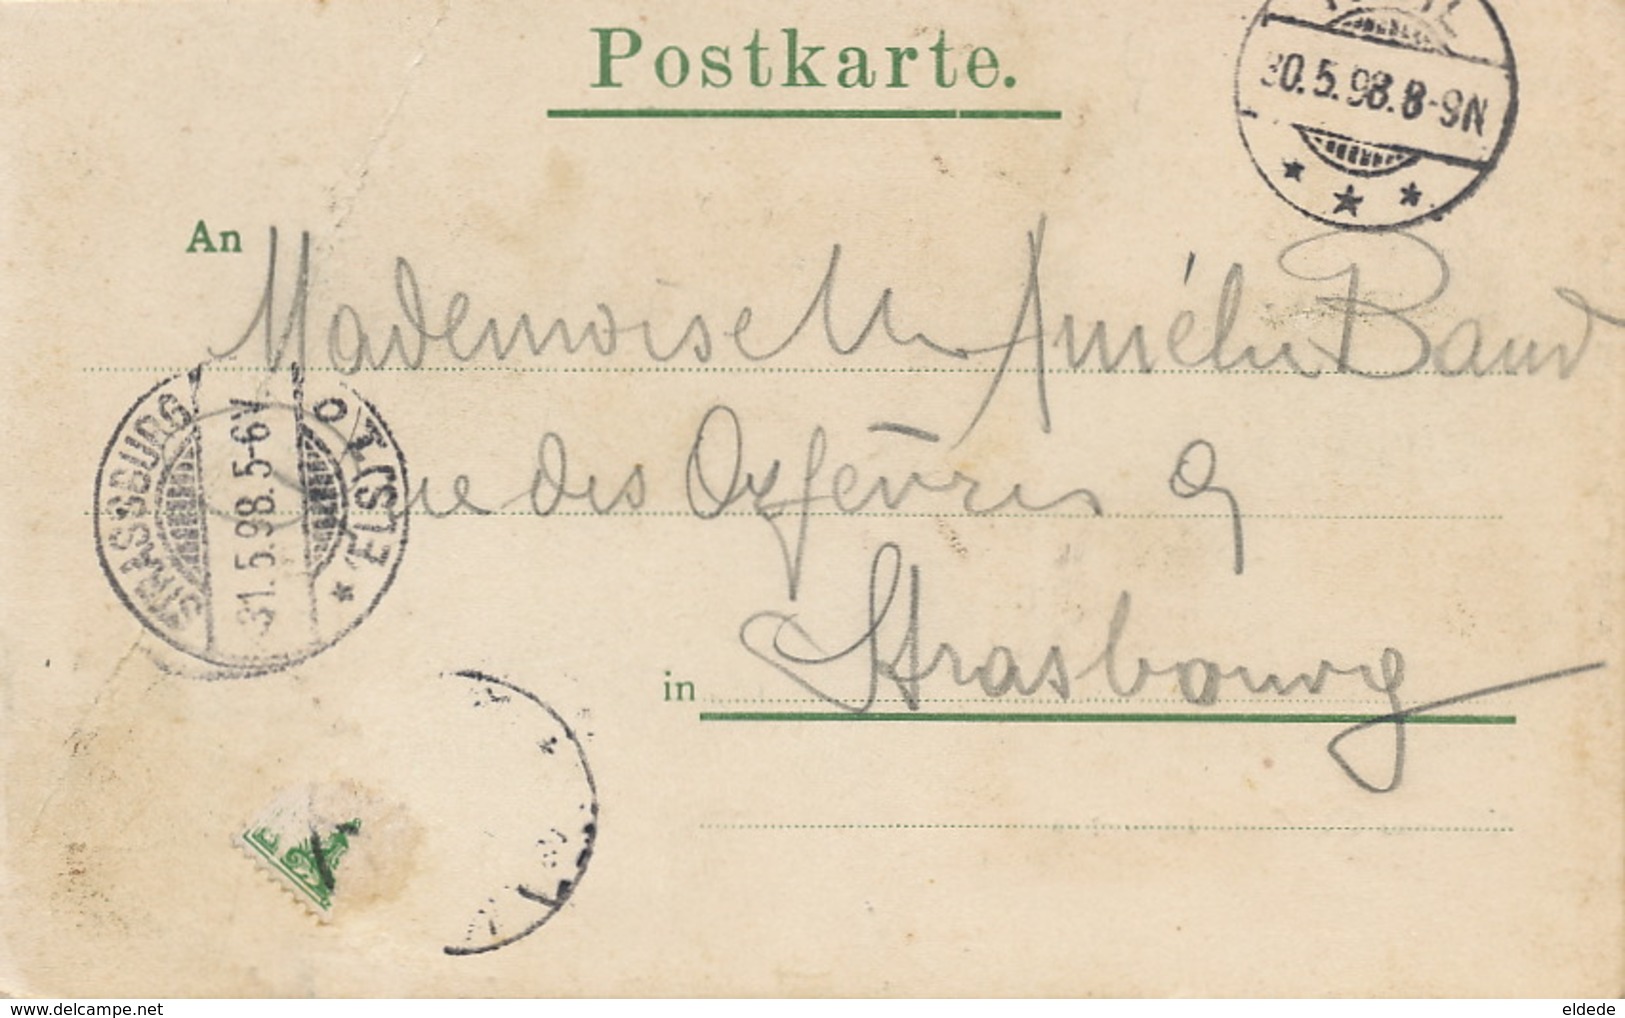 Postkarte.
30.5.98.8-9N
An Mademoiselle Amélie
STRASSBURG (ELS)
31.5.98.5-6V
Rue des Orfèvres 9
in Strasbourg
www.delcampe.net
eldede